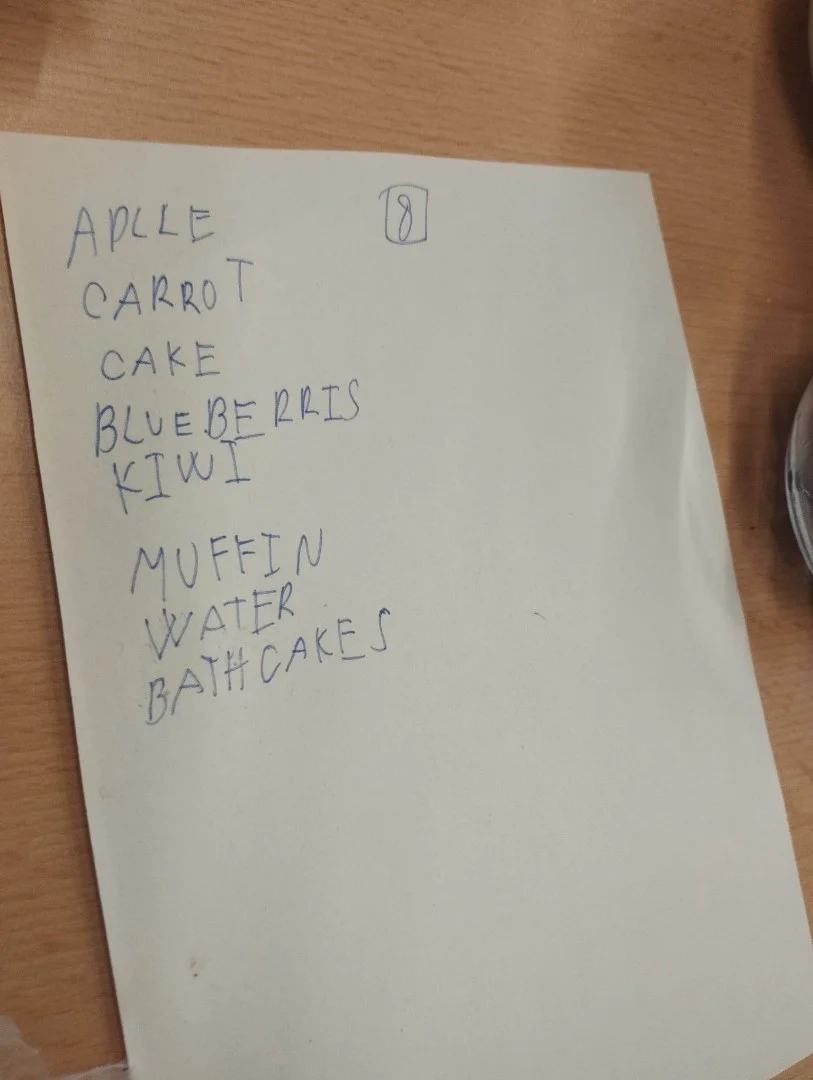 APLLE
8
CARROT
CAKE
BLUEBERRIS
KIWI
MUFFIN
WATER
BATHCAKES